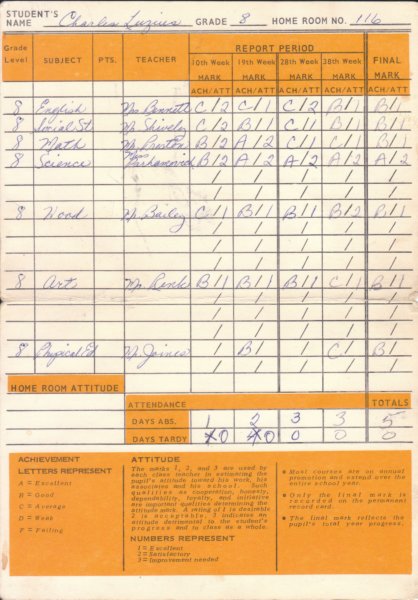 STUDENT'S NAME Charles Luzius GRADE 8 HOME ROOM NO. 116
Grade Level SUBJECT PTS. TEACHER REPORT PERIOD FINAL MARK
10th Week MARK 19th Week MARK 28th Week MARK 38th Week MARK
ACH/ATT ACH/ATT ACH/ATT ACH/ATT ACH/ATT
8 English Mrs Bennett C/2 C/1 C/2 B/1 B/1
8 Social St Mr. Shiveley C/2 B/1 C/1 B/1 B/1
8 Math Mr. B/2 A/2 C/1 B/1 B/1
8 Science Miss B/2 A/2 A/2 A/2 A/2
8 Wood Mr. Bailey C/1 B/1 B/1 B/2 B/1
8 Art Mr. Renk B/1 B/1 B/1 C/1 B/1
8 Physical Ed Mr. Joines B/ C/ B/
HOME ROOM ATTITUDE
ATTENDANCE TOTALS
DAYS ABS. 1 2 3 3 5
DAYS TARDY 0 0 0 0 0
ACHIEVEMENT
LETTERS REPRESENT
A = Excellent
B = Good
C = Average
D = Weak
F = Failing
ATTITUDE
The marks 1, 2, and 3 are used by
each class teacher in estimating the
pupil's attitude toward his work, his
associates and his school. Such
qualities as cooperation, honesty,
dependability, loyalty, and initiative
are important qualities determining the
attitude mark. A rating of 1 is desirable
2 is acceptable, 3 indicates an
attitude detrimental to the student's
progress and to class as a whole.
NUMBERS REPRESENT
1 = Excellent
2 = Satisfactory
3 = Improvement needed
• Most courses are on annual
promotion and extend over the
entire school year.
• Only the final mark is
recorded on the permanent
record card.
• The final mark reflects the
pupil's total year progress.